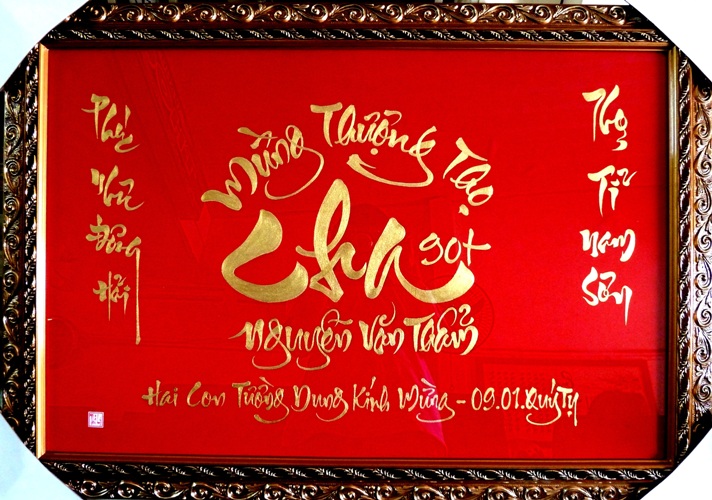 Phúc
Như
Đông
Hải
Mừng Thượng Thọ
Cha
90+
Nguyễn Văn Thẩm
Thọ
Tỉ
Nam
Sơn
Hai Con Tường Dung Kính Mừng - 09.01.Quý Tỵ